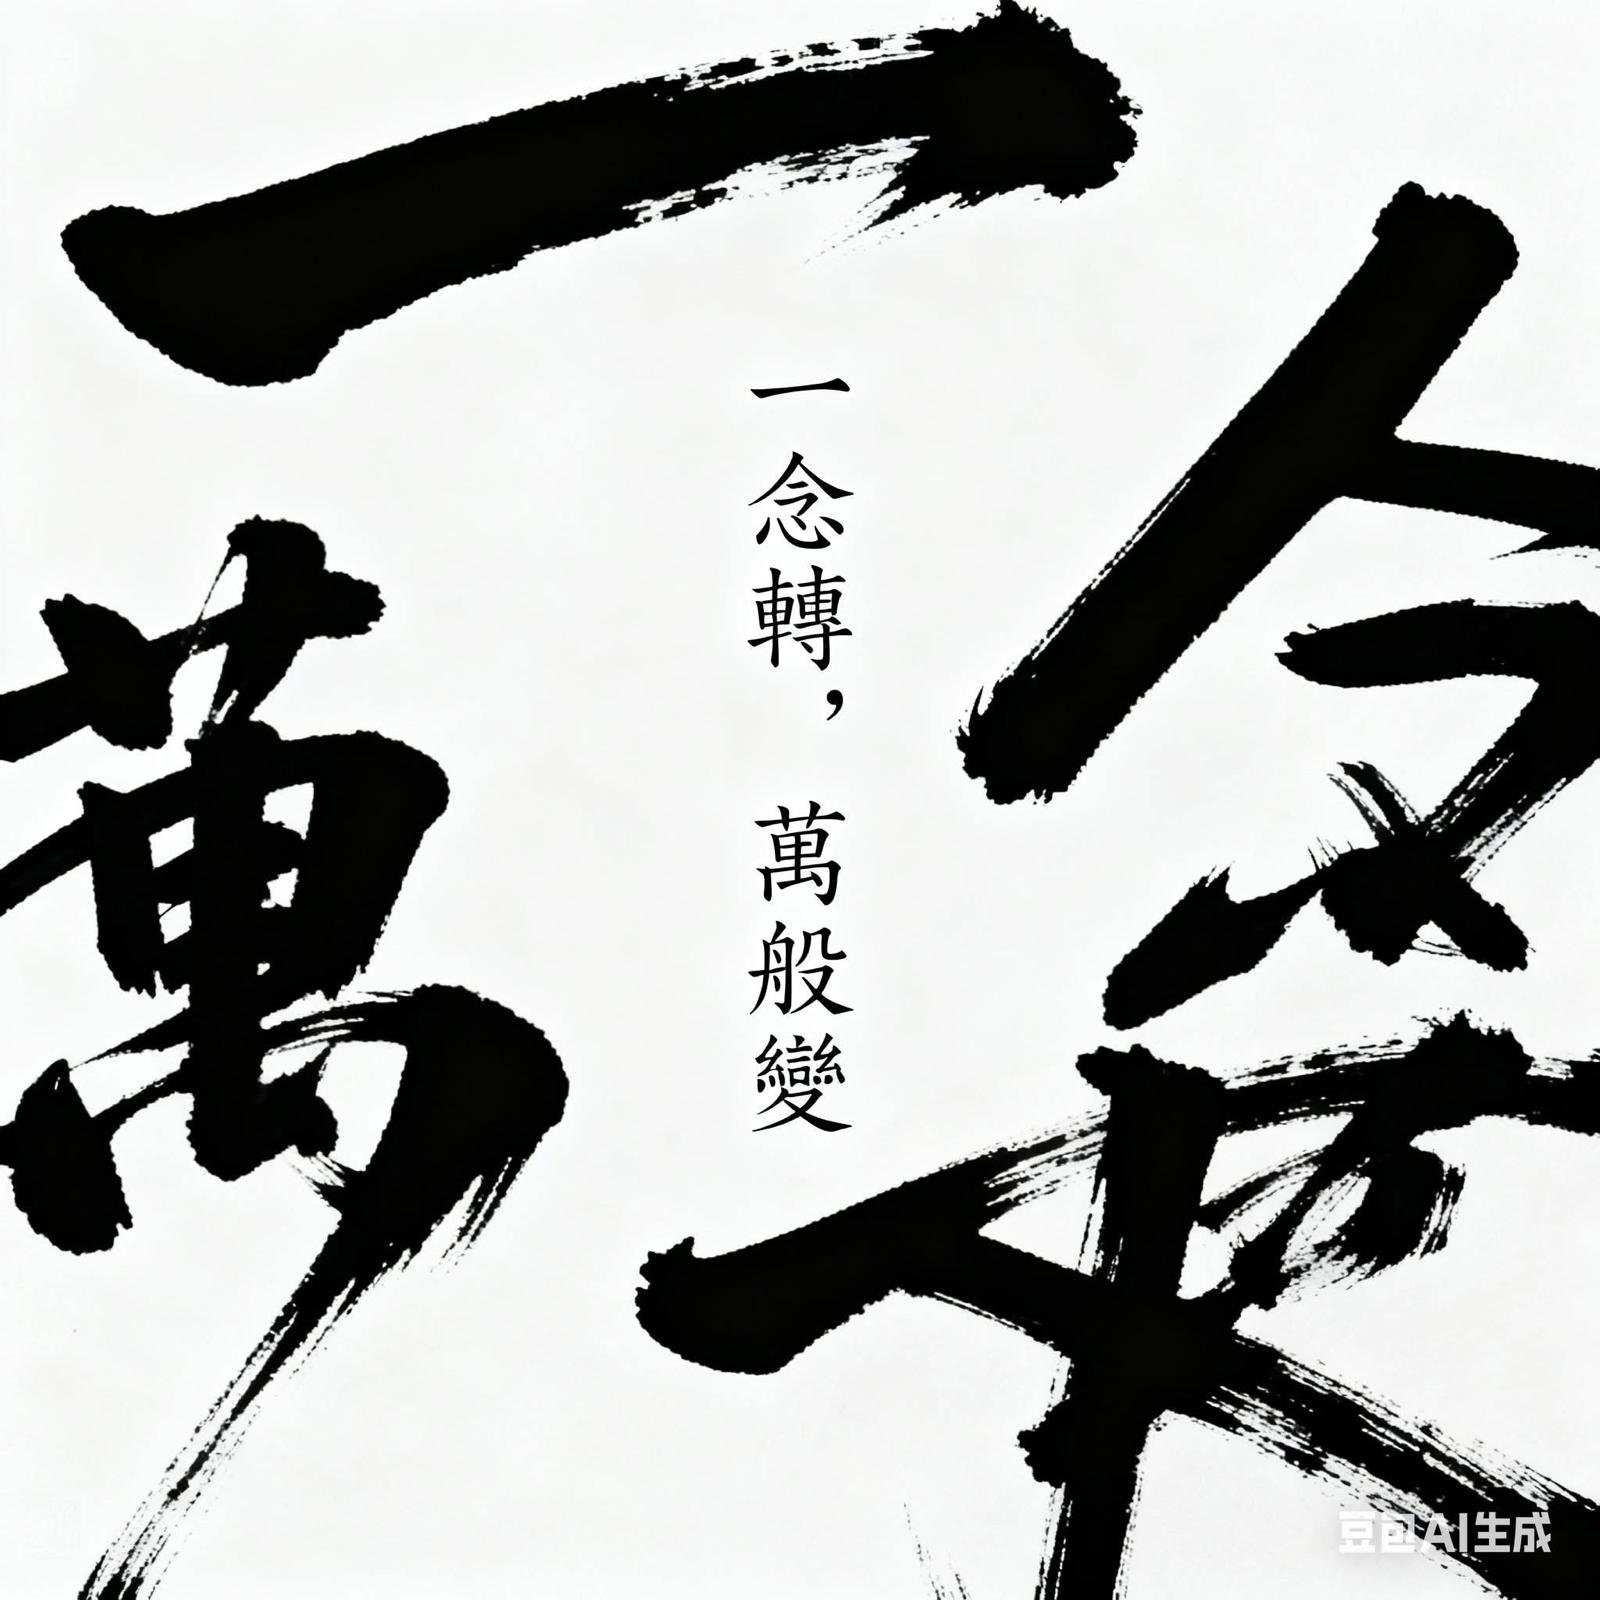 一
念
萬
一念轉，萬般變
豆包AI生成